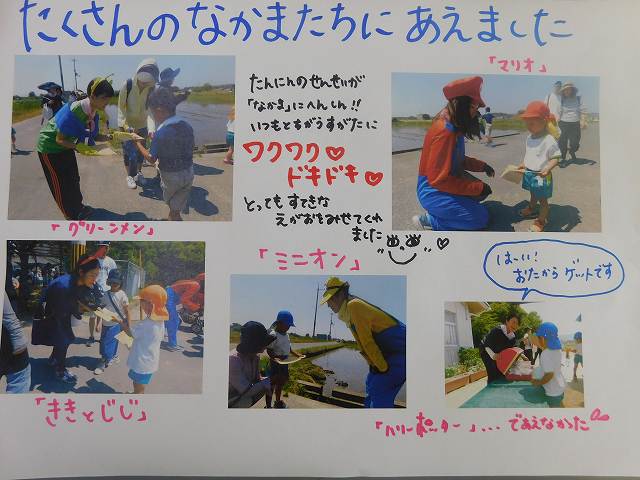 たくさんのなかまたちにあえました
「マリオ」
たんにんのせんせいが
「なかま」にへんしん!!
いつもとちがうすがたに
ワクワク♡
ドキドキ♡
とってもすてきな
えがおをみせてくれ
ました
「グリーンメン」
「ミニオン」
はーい!
おたから ゲットです
「ききとジジ」
「ハリーポッター」...であえなかった